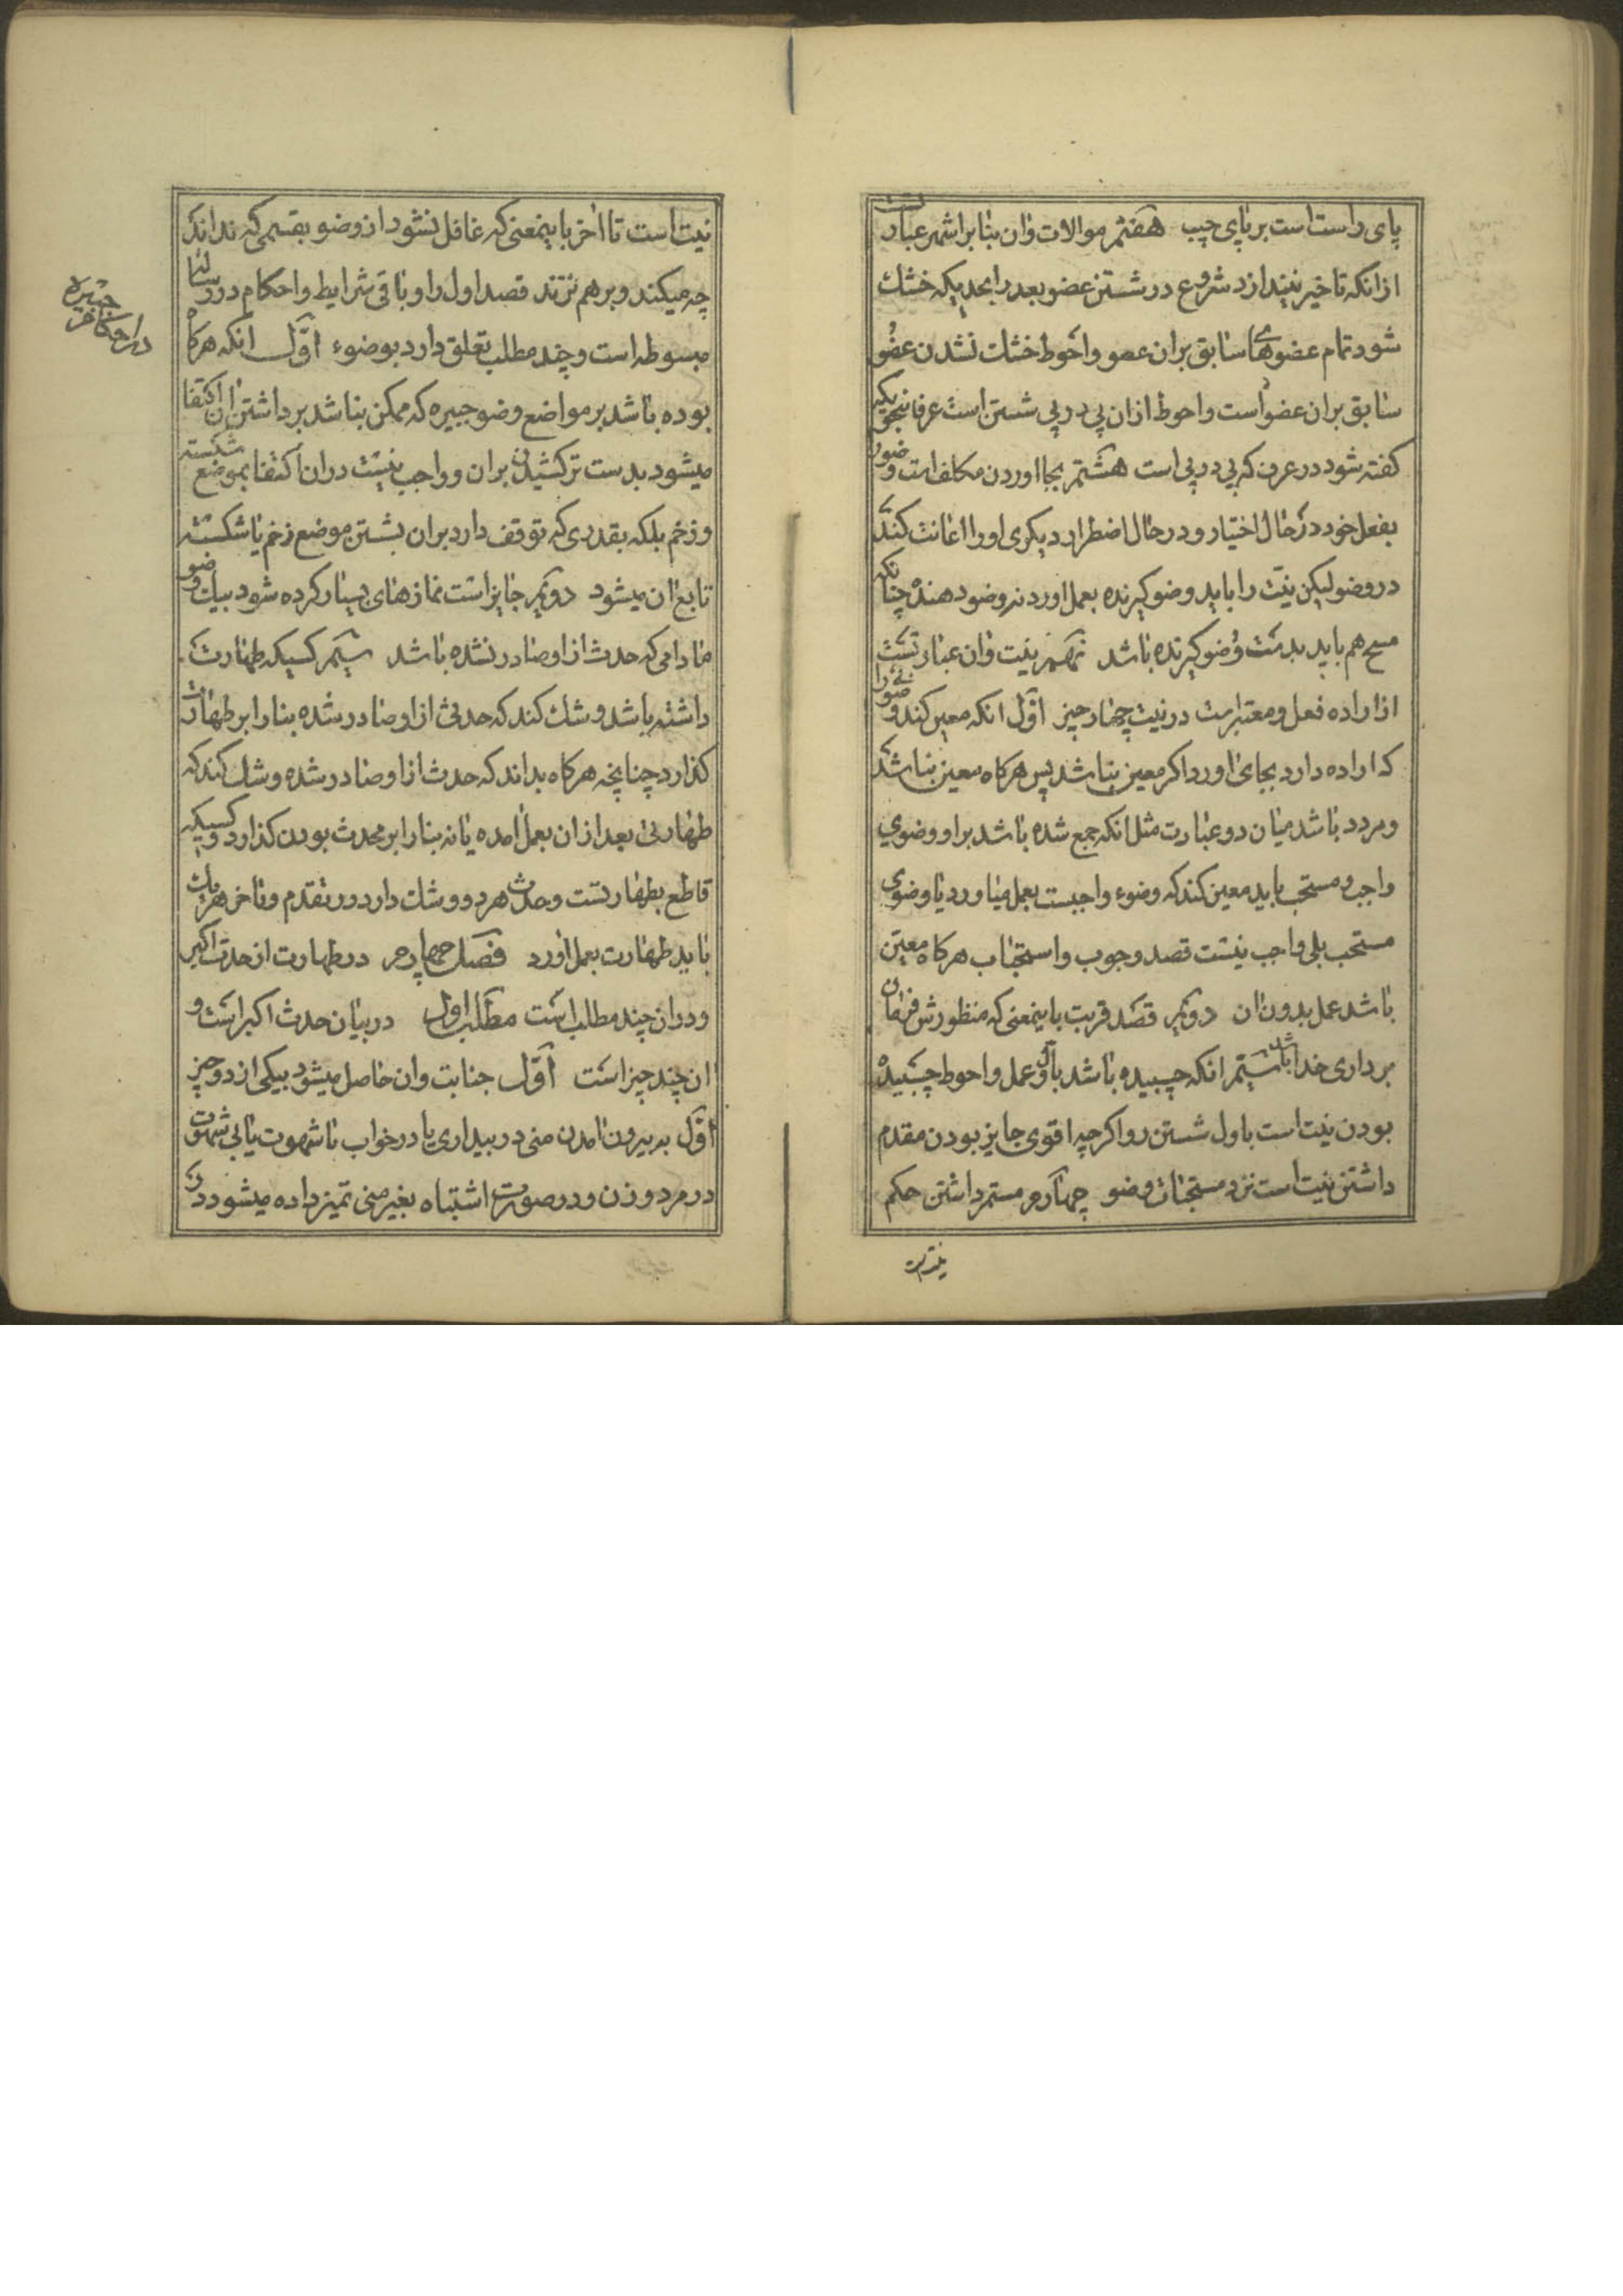 پای راست است بر پای چپ هفتم موالات وان بنا بر اشهر عبارتست
از انکه تاخیر نیندازد شروع در شستن عضو بعد را بحدیکه خشک
شود تمام عضوهای سابق بران عضو واحوط خشک نشدن عضو
سابق بران عضو است واحوط ازان پی در پی شستن است عرفا بنحویکه
کفته شود در عرف که پی در پی است هشتم بجا اوردن مکلف است وضورا
بفعل خود در حال اختیار ودر حال اضطرار دیکری اورا اعانت کند
در وضو لیکن نیت را باید وضو کیرنده بعمل اورد نه وضو دهنده چنانکه
مسح هم باید بدست وضو کیرنده باشد نهم نیت وان عبارتست
از اراده فعل ومعتبر است در نیت چهار چیز اول انکه معین کند وضوئی را
که اراده دارد بجای اورد اکر معین نباشد پس هرکاه معین نباشد
ومردد باشد میان دو عبارت مثل انکه جمع شده باشد براو وضوی
واجب ومستحب باید معین کند که وضوء واجبست بعمل میاورد یا وضوی
مستحب بلی واجب نیست قصد وجوب واستحباب هرکاه معین
باشد عمل بدون ان دویم قصد قربت باینمعنی که منظورش فرمان
برداری خدا باشد سیم انکه چسبیده باشد باول عمل واحوط چسبیده
بودن نیت است باول شستن رو اکرچه اقوی جایز بودن مقدم
داشتن نیت است نزد مستحبات وضو چهارم مستمر داشتن حکم
نیت است
نیت است تا اخر باینمعنی که غافل نشود از وضو بقسمی که نداند که
چه میکند وبرهم نزند قصد اول را وباقی شرایط واحکام در رسالها
مبسوطه است وچند مطلب تعلق دارد بوضوء اول انکه هرکاه
بوده باشد بر مواضع وضو جبیره که ممکن نباشد برداشتن ان اکتفا
میشود بدست تر کشیدن بران وواجب نیست دران اکتفا بموضع شکسته
وزخم بلکه بقدری که توقف دارد بران بستن موضع زخم یا شکسته
تابع ان میشود دویم جایز است نمازهای بسیار کرده شود بیک وضو
مادامی که حدث از او صادر نشده باشد سیم کسیکه طهارت
داشته باشد وشک کند که حدثی از او صادر شده بنا را بر طهارت
کذارد چنانچه هرکاه بداند که حدث از او صادر شده وشک کند که
طهارتی بعد ازان بعمل امده یا نه بنا را بر محدث بودن کذارد وکسیکه
قاطع بطهارتست وحدث هردو وشک دارد در تقدم وتاخر هریک
باید طهارت بعمل اورد فصل چهارم در طهارت از حدث اکبر
ودران چند مطلب است مطلب اول در بیان حدث اکبر است و
ان چند چیز است اول جنابت وان حاصل میشود بیکی از دو چیز
اول به بیرون امدن منی در بیداری یا در خواب با شهوت یا بی شهوت
در مرد وزن ودر صورت اشتباه بغیر منی تمیز داده میشود در
در احکام جبیره